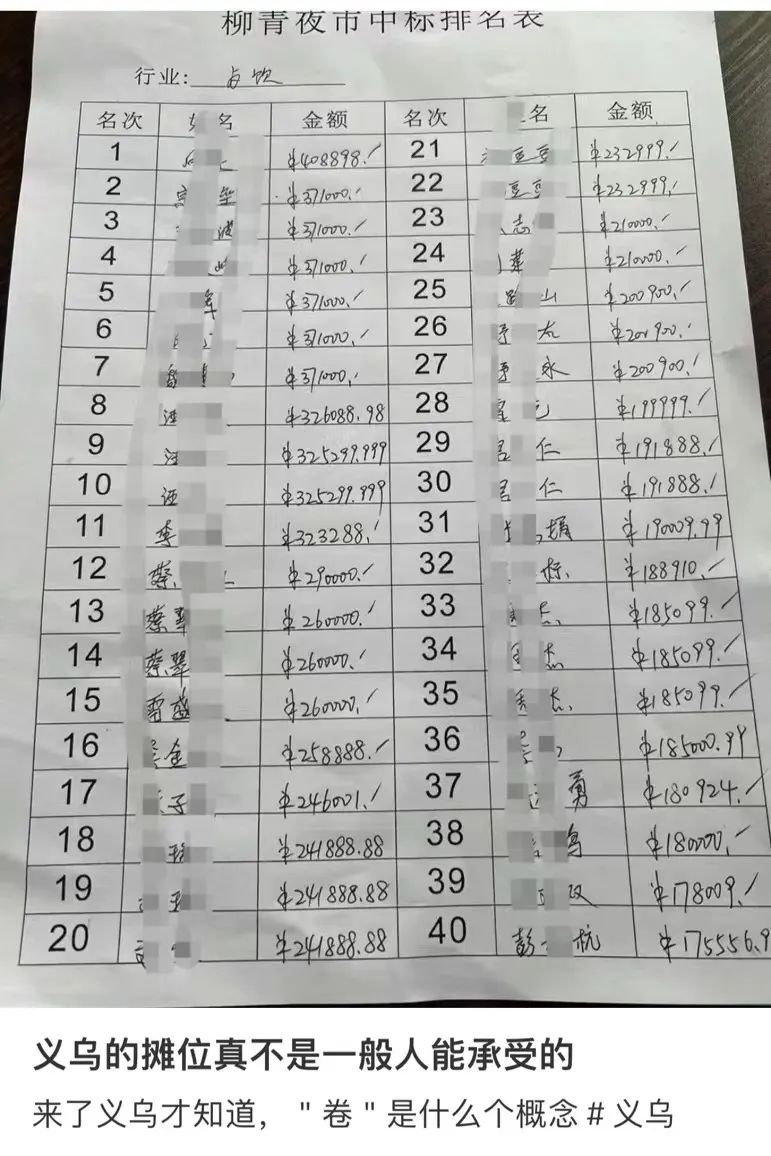 柳青夜市中标排名表
行业:
名次 名 金额 名次 名 金额
1 ¥408898./ 21 豆豆 ¥232999./
2 ¥371000./ 22 豆豆 ¥232999./
3 波 ¥371000./ 23 志 ¥210000./
4 ¥371000./ 24 ¥210000./
5 军 ¥371000./ 25 山 ¥200900./
6 ¥371000./ 26 太 ¥200900./
7 ¥371000./ 27 永 ¥200900./
8 汪 ¥326088.98 28 ¥199999./
9 汪 ¥325299.999 29 仁 ¥191888./
10 汪 ¥325299.999 30 仁 ¥191888./
11 李 ¥323288./ 31 ¥190009.99
12 蔡 ¥290000./ 32 标 ¥188910./
13 蔡翠 ¥260000./ 33 杰 ¥185099./
14 蔡翠 ¥260000./ 34 杰 ¥185099./
15 雷 ¥260000./ 35 杰 ¥185099./
16 金 ¥258888./ 36 ¥185000.99
17 子 ¥246001./ 37 勇 ¥180924./
18 ¥241888.88 38 ¥180000./
19 ¥241888.88 39 ¥178009./
20 ¥241888.88 40 彭 杭 ¥175556.9
义乌的摊位真不是一般人能承受的
来了义乌才知道，"卷"是什么个概念#义乌